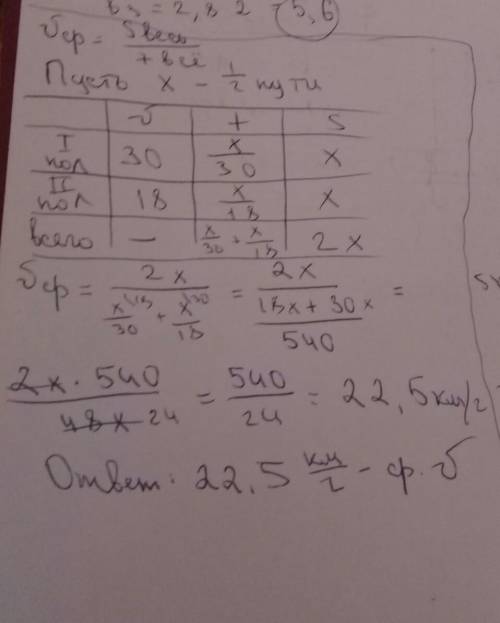 = 2,8 2 = 5,6
υср = Sвесь / tвсё
Пусть x - 1/2 пути
υ t S
I пол 30 x/30 x
II пол 18 x/18 x
всего — x/30 + x/18 2x
υср = 2x / (x/30 ^18 + x/18 ^30) = 2x / ((18x + 30x)/540) =
2x · 540 / 48x 24 = 540/24 = 22,5 км/ч
Ответ: 22,5 км/ч - ср. υ